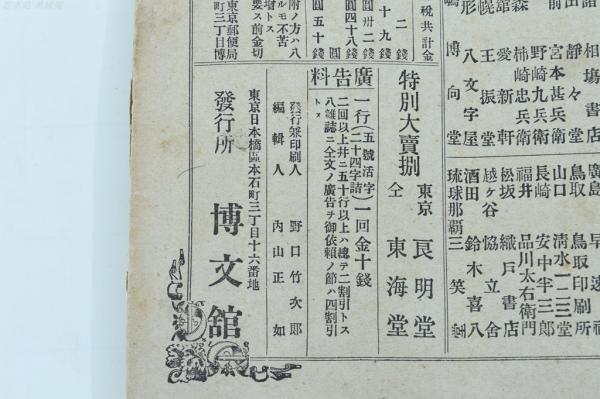 相塲書店
靜々堂
宮本甚兵衞
野崎九兵衞
柿崎忠兵衞
愛新軒
王振堂
八文字屋
博向堂
廣島 早速社
鳥取 鳥取印刷所
山口 清水一二三堂
長崎 安中半三郎
福井 品川太右衞門
松坂 織戸書店
越ヶ谷 協立舍
酒田 鈴木喜八
琉球那覇 三笑
税共計金
二錢
十九錢
圓卅二錢
圓四十八錢
圓五十錢
附ノ方ハ八
ルモ不苦
增トス
要ス前金切
東京郵便局
町三丁目博
特別大賣捌
東京 良明堂
仝 東海堂
廣告料
一行(五號活字二十四字詰)一回金十錢
二回以上幷ニ五十行以上ハ總テ二割引トス
八雜誌ニ仝文ノ廣告ヲ御依賴ノ節ハ四割引
トス
發行兼印刷人 野口竹次郎
編輯人 內山正如
東京日本橋區本石町三丁目十六番地
發行所 博文館